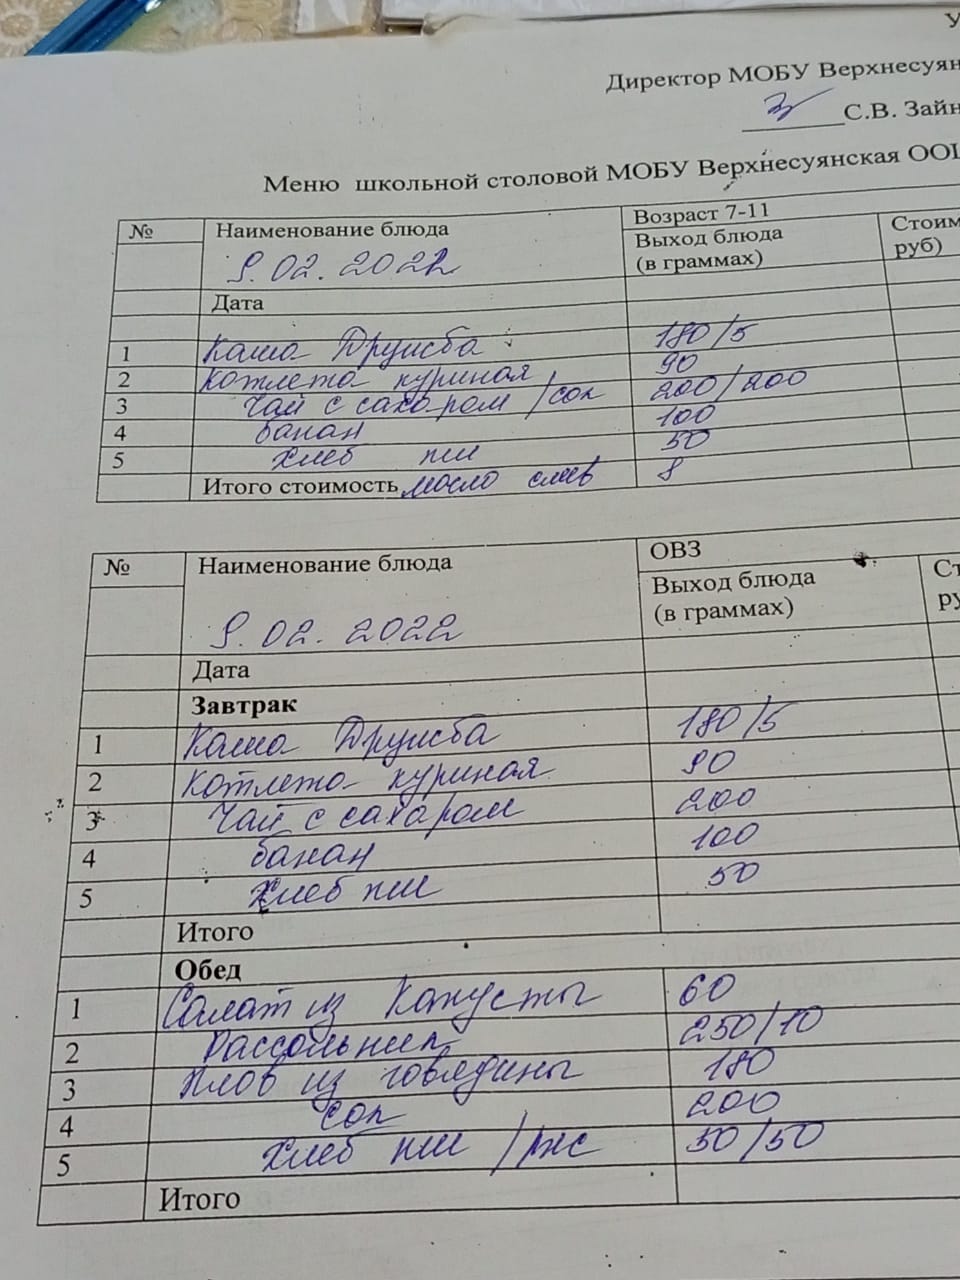 У
Директор МОБУ Верхнесуян
С.В. Зайн
Меню школьной столовой МОБУ Верхнесуянская ООШ
№ Наименование блюда Возраст 7-11
Выход блюда (в граммах) Стоим руб)
9.02.2022
Дата
1 Каша Дружба 180/5
2 Котлета куриная 90
3 Чай с сахаром /сок 200/200
4 банан 100
5 Хлеб пш 50
Итого стоимость масло слив 8
№ Наименование блюда ОВЗ
Выход блюда (в граммах) Ст ру
9.02.2022
Дата
Завтрак
1 Каша Дружба 180/5
2 Котлета куриная 90
3 Чай с сахаром 200
4 банан 100
5 Хлеб пш 50
Итого
Обед
1 Салат из капусты 60
2 Рассольник 250/10
3 Плов из говядины 180
4 Сок 200
5 Хлеб пш /рж 50/50
Итого